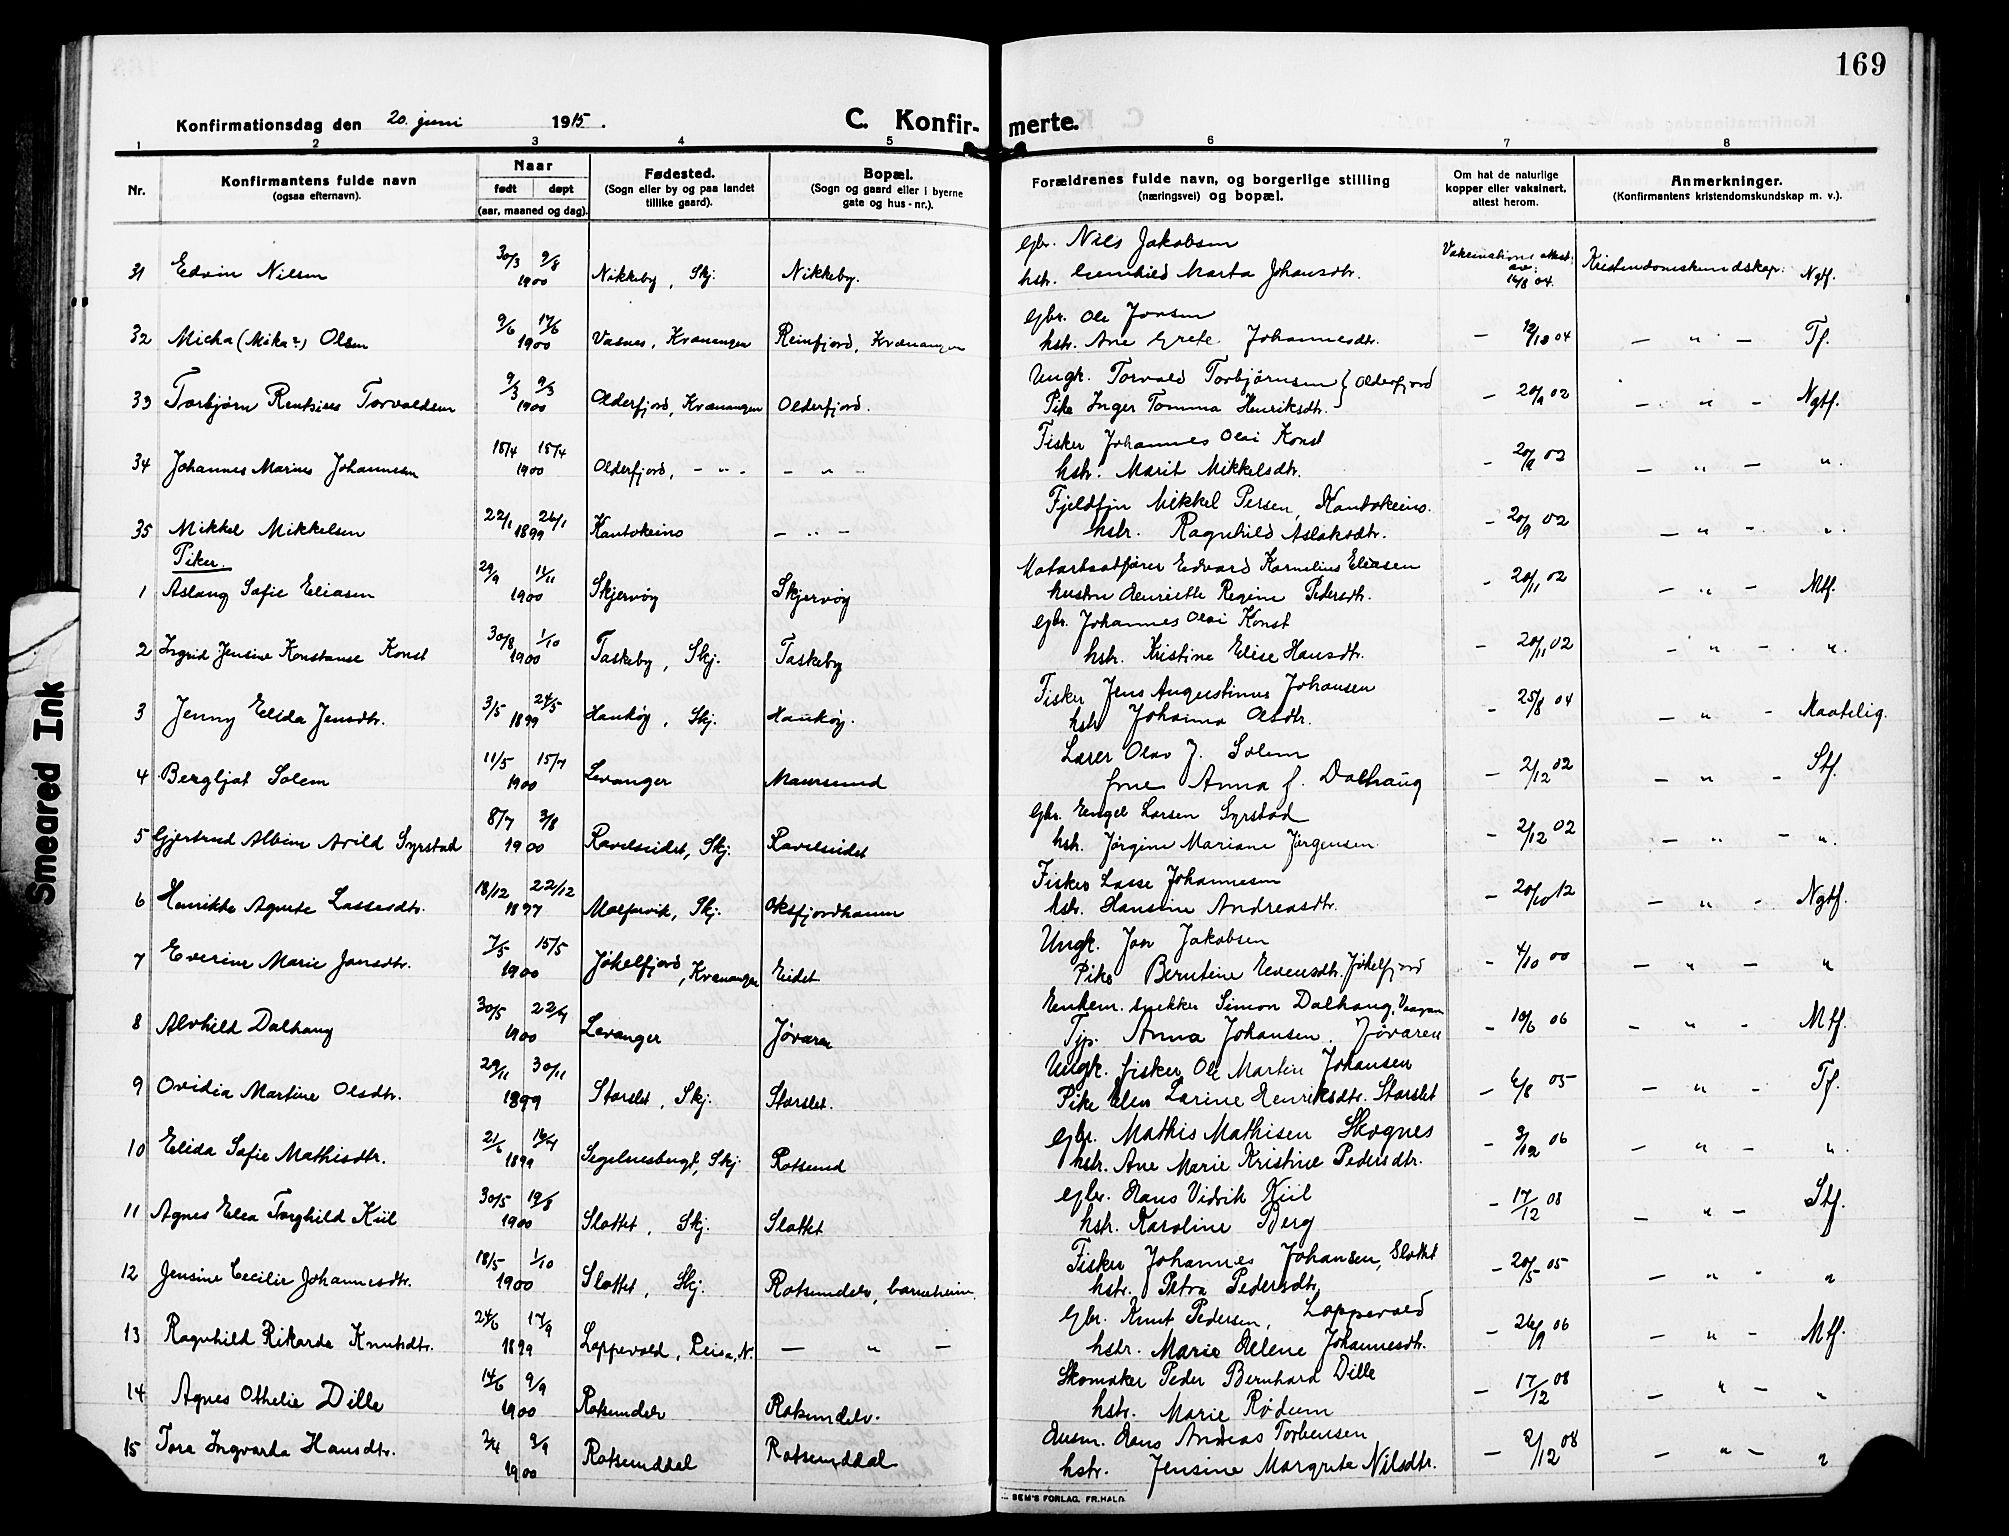 169
Konfirmationsdag den 20. juni 1915.
C. Konfirmerte.
1 2 3 4 5 6 7 8
Nr.
Konfirmantens fulde navn
(ogsaa efternavn).
Naar
født døpt
(aar, maaned og dag).
Fødested.
(Sogn eller by og paa landet
tillike gaard).
Bopæl.
(Sogn og gaard eller i byerne
gate og hus-nr.).
Forældrenes fulde navn, og borgerlige stilling
(næringsvei) og bopæl.
Om hat de naturlige
kopper eller vaksinert,
attest herom.
Anmerkninger.
(Konfirmantens kristendomskundskap m. v.).
31 Edvin Nilsen 30/3 9/8 1900 Nikkeby, Skj. Nikkeby.
Gbr. Nils Jakobsen
hstr. Gunhild Marta Johansdtr.
16/8 04. Kristendomskundskap: Ngtf.
32 Micha (Mika?) Olsen 9/6 17/6 1900 Vasnes, Kvænangen Reinfjord, Kvænangen
Gbr. Ole Jonsen
hstr. Ane Grete Johannesdtr.
— 12/10 04 — " — Tf.
33 Torbjørn Torvaldsen 9/3 9/3 1900 Olderfjord, Kvænangen Olderfjord.
Ungk. Torvald Torbjørnsen } Olderfjord
Pike Inger Tomma Henriksdtr.
— 20/9 02 — " — Ngtf.
34 Johannes Marius Johannesen 15/4 15/4 1900 Olderfjord, — " — — " —
Fisker Johannes Olai Konst
hstr. Marit Mikkelsdtr.
— 20/9 02 — " — ".
35 Mikkel Mikkelsen 22/1 26/1 1899 Kautokeino — " —
Fjeldfin Mikkel Persen, Kautokeino.
hstr. Ragnhild Aslaksdtr.
— 20/9 02 — " — ".
Piker
1 Aslaug Sofie Eliasen 29/9 11/11 1900 Skjervøy Skjervøy
Motorbaatfører Edvard Kornelius Eliasen
hustru Henriette Regine Pedersdtr.
— 20/11 02 — " — Mtf.
2 Ingrid Jensine Konstanse Konst 30/8 1/10 1900 Taskeby, Skj. Taskeby
Gbr. Johannes Olai Konst
hstr. Kristine Elise Hansdtr.
— 20/11 02 — " — ".
3 Jenny Elida Jensdtr. 3/5 24/5 1899 Haukøy, Skj. Haukøy.
Fisker Jens Augustinus Johansen
hstr Johanna Olsdtr.
— 25/8 04 — " — Maatelig.
4 Bergljot Solem 11/5 15/7 1900 Levanger Maursund
Lærer Olav J. Solem
frue Anna f. Dalhaug
— 2/12 02 — " — Stf.
5 Gjertrud Albine Arild Syrstad 8/7 3/8 1900 Ravelseidet, Skj. Ravelseidet
Gbr. Engel Larsen Syrstad
hstr. Jørgine Mariane Jørgensen
— 2/12 02 — " — ".
6 Henrikke Agnete Lassesdtr. 18/12 22/12 1897 Skj. Oksfjordhamn
Fisker Lasse Johannesen
hstr. Hansine Andreasdtr.
— 20/10 12 — " — Ngtf.
7 Everine Marie Jonsdtr. 7/5 15/5 1900 Jøkelfjord, Kvænangen Eidet
Ungk. Jon Jakobsen
Pike Berntine Evensdtr. Jøkelfjord
— 4/10 00 — " — "
8 Alvhild Dalhaug 30/5 22/7 1900 Levanger Jøvaren
Enkem. snekker Simon Dalhaug,
Tjp. Anna Johansen Jøvaren
— 10/6 06 — " — Mtf.
9 Ovidia Martine Olsdtr. 29/11 30/11 1899 Storslet, Skj. Storslet.
Ungk. fisker Ole Martin Johansen
Pike Elen Larine Henriksdtr. Storslet
— 6/8 05 — " — Tf.
10 Elida Sofie Mathisdtr. 21/6 16/7 1899 Segelnesbugt, Skj. Rotsund
Gbr. Mathis Mathisen Skognes
hstr. Ane Marie Kristine Pedersdtr.
— 3/12 06 — " — ".
11 Agnes Elea Torghild Kiil 30/5 19/8 1900 Slottet, Skj. Slottet
Gbr. Hans Vidrik Kiil
hstr. Karoline Berg
— 17/12 08 — " — Stf.
12 Jensine Cecilie Johannesdtr. 18/5 1/10 1900 Slottet, Skj. Rotsundelv, barneheim.
Fisker Johannes Johansen, Slottet
hstr. Petra Pedersdtr
— 20/5 05 — " — "
13 Ragnhild Rikarda Knutsdtr. 24/6 17/9 1899 Loppevold, Reisa, N. — " —
Gbr. Knut Pedersen, Loppevold
hstr. Marie Helene Johannesdtr.
— 26/9 06 — " — Mtf.
14 Agnes Othelie Dille 14/6 9/9 1900 Rotsundelv Rotsundelv.
Skomaker Peder Bernhard Dille
hstr. Marie Rødum
— 17/12 08 — " — "
15 Tora Ingvarda Hansdtr. 2/4 9/9 1900 Rotsunddal Rotsunddal
Husm. Hans Andreas Torbensen
hstr. Jensine Margrete Nilsdtr.
— 2/12 08 — " — "
SEM'S FORLAG, FR.HALD.
Smeared Ink